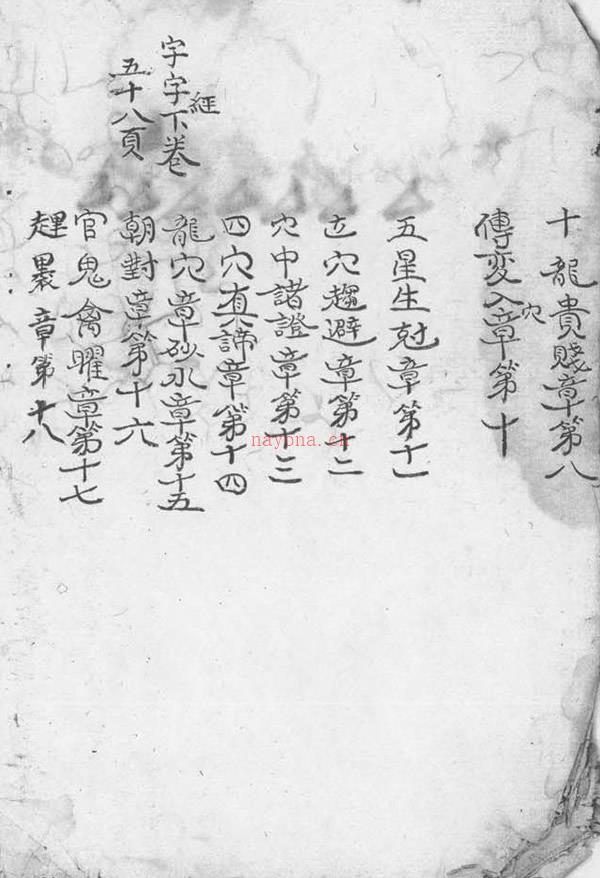 十龍貴賤章第八
傳変入穴章第十
五星生尅章第十一
立穴趨避章第十二
穴中諸證章第十三
四穴真諦章第十四
龍穴章砂水章第十五
朝對章第十六
官鬼禽曜章第十七
章第十八
字字經下卷
五十八頁
nayona.cn